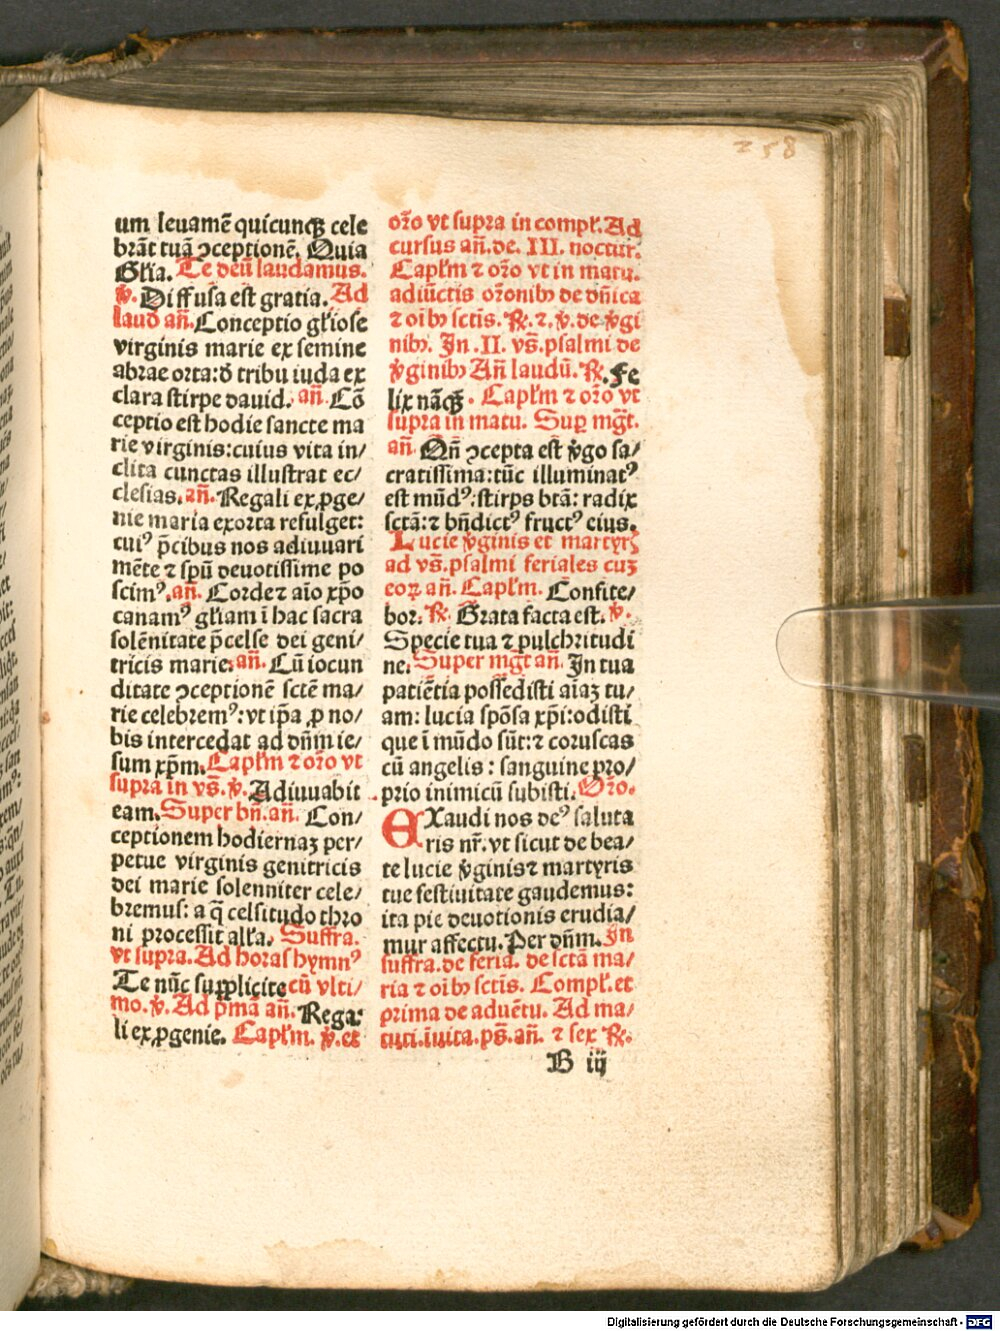 258
um leuamē quicunqꝫ cele
brāt tuā ↄceptionē. Quia
Gl'ia. Te deū laudamus.
℣. Diffusa est gratia. Ad
laud̄ an̄. Conceptio gl'iose
virginis marie ex semine
abrae orta: d̄ tribu iuda ex
clara stirpe dauid. an̄. Cō
ceptio est hodie sancte ma
rie virginis: cuius vita in/
clita cunctas illustrat ec/
clesias. an̄. Regali ex ꝓge/
nie maria exorta refulget:
cuiꝰ p̄cibus nos adiuuari
mēte ⁊ spū deuotissime po
scimꝰ. an̄. Corde ⁊ aīo xp̄o
canamꝰ gl'iam ī hac sacra
solēnitate p̄celse dei geni/
tricis marie. an̄. Cū iocun
ditate ↄceptionē sctē ma/
rie celebremꝰ: vt ip̄a ꝓ no/
bis intercedat ad dn̄m ie/
sum xp̄m. Capl'm ⁊ or̄o vt
supra in vs̄. ℣. Adiuuabit
eam. Super bn̄. an̄. Con/
ceptionem hodiernaꝫ per/
petue virginis genitricis
dei marie solenniter cele/
bremus: a q̄ celsitudo thro
ni processit all'a. Suffra.
vt supra. Ad horas hymnꝰ
Te nūc supplicite cū vlti/
mo. ℣. Ad p̄mā an̄. Rega/
li ex ꝓgenie. Capl'm. ℣. et
or̄o vt supra in compl'. Ad
cursus an̄. de. III. noctur.
Capl'm ⁊ or̄o vt in matu.
adiūctis or̄onibꝫ de dn̄ica
⁊ oībꝫ sctīs. ℟. ⁊. ℣. de v̄gi
nibꝫ. In. II. vs̄. psalmi de
v̄ginibꝫ An̄ laudū. ℟. Fe
lix nāqꝫ. Capl'm ⁊ or̄o vt
supra in matu. Suꝑ mḡt.
an̄. Qn̄ ↄcepta est v̄go sa/
cratissima: tūc illuminatꝰ
est mūdꝰ: stirps btā: radix
sctā: ⁊ bn̄dictꝰ fructꝰ eius.
Lucie v̄ginis et martyrꝭ
ad vs̄. psalmi feriales cuꝫ
eoꝝ an̄. Capl'm. Confite/
bor. ℟. Grata facta est. ℣.
Specie tua ⁊ pulchritudi
ne. Super mḡt an̄. In tua
patiētia possedisti aīaꝫ tu/
am: lucia spōsa xp̄i: odisti
que ī mūdo sūt: ⁊ coruscas
cū angelis: sanguine pro/
prio inimicū subisti. Or̄o.
EXaudi nos deꝰ saluta
ris nr̄. vt sicut de bea/
te lucie v̄ginis ⁊ martyris
tue festiuitate gaudemus:
ita pie deuotionis erudia/
mur affectu. Per dn̄m. In
suffra. de feria. de sctā ma/
ria ⁊ oībꝫ sctīs. Compl'. et
prima de aduētu. Ad ma/
tuti. īuita. ps̄. an̄. ⁊ sex ℟.
B iij
Digitalisierung gefördert durch die Deutsche Forschungsgemeinschaft - DFG